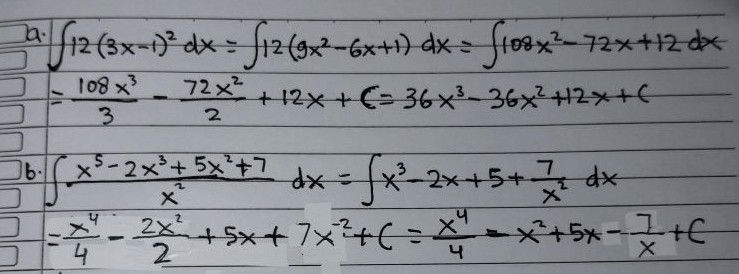 a. ∫12(3x-1)² dx = ∫12(9x²-6x+1) dx = ∫108x²-72x+12 dx
= 108x³/3 - 72x²/2 + 12x + C = 36x³-36x²+12x+C
b. ∫ (x⁵-2x³+5x²+7)/x² dx = ∫x³-2x+5+7/x² dx
= x⁴/4 - 2x²/2 + 5x + 7x⁻²+C = x⁴/4 - x²+5x-7/x+C